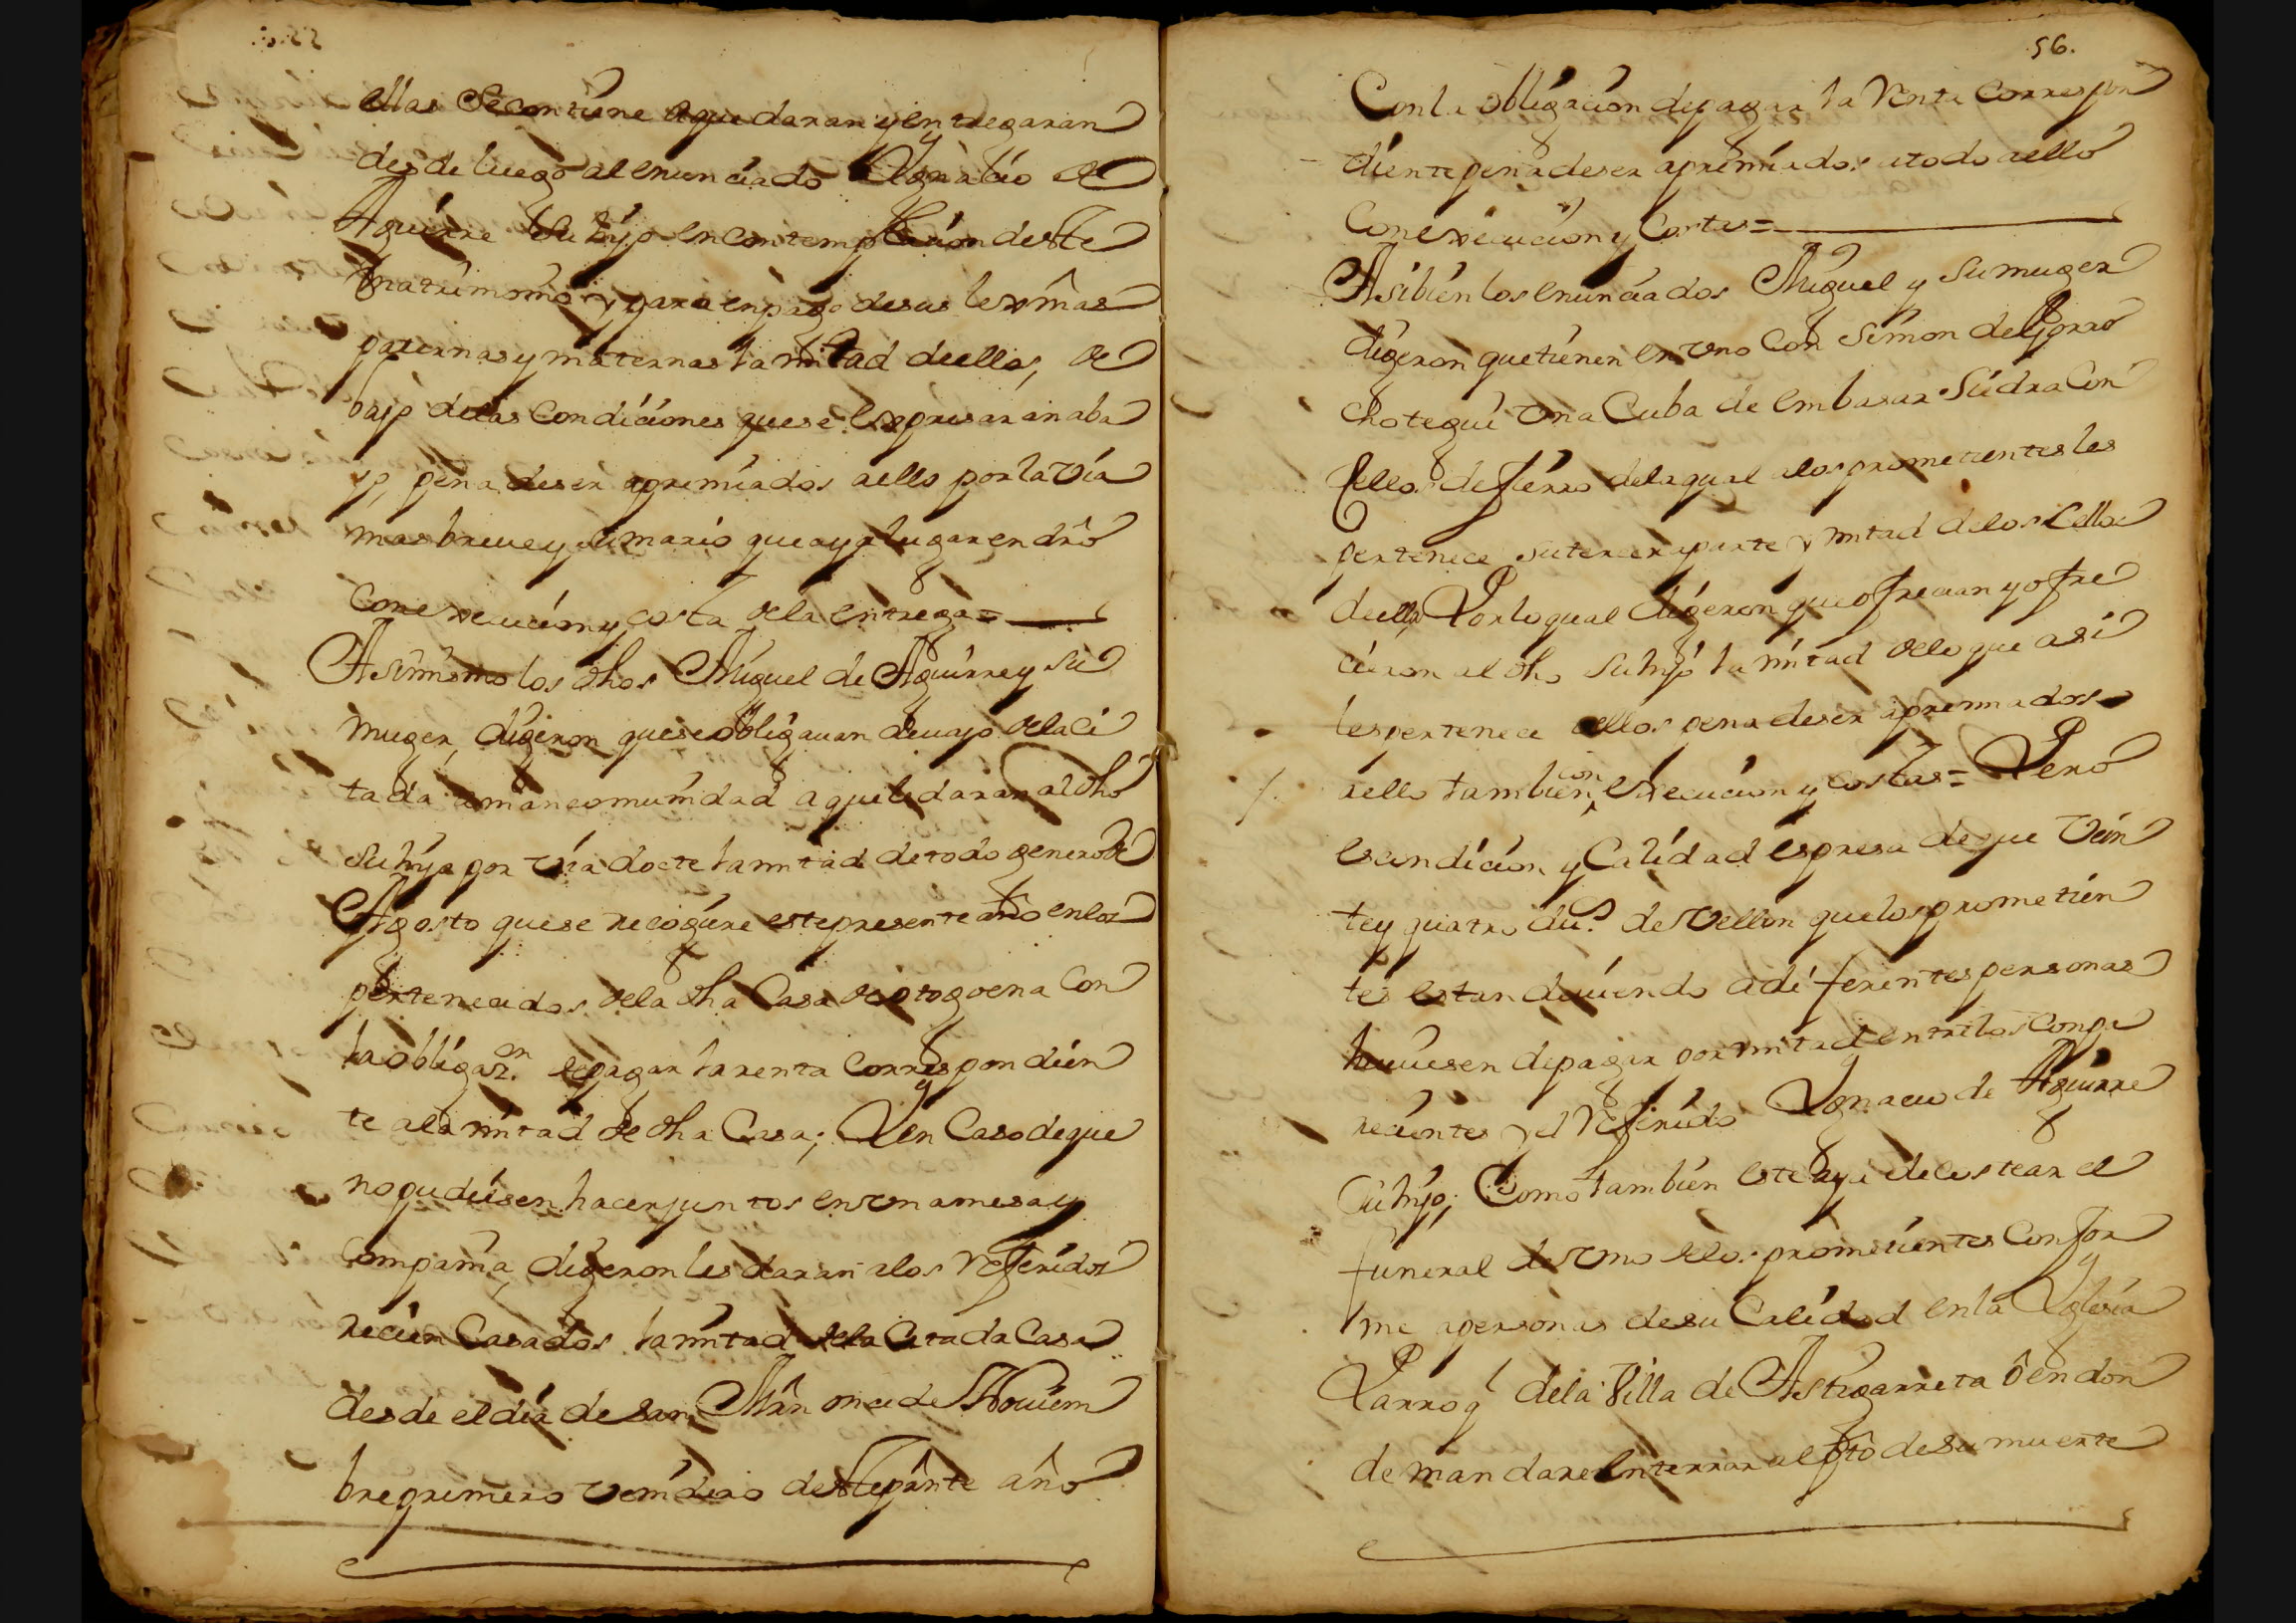 ellas Se contiene a que daran y entregaran
desde luego al enunciado Ygnacio de
Aguirre Su hijo en contemplacion deste
matrimonio y para en pago de sus lexmas
paternas y maternas la mitad de ellas, de
bajo de las Condiciones que se Espresaran aba
jo, pena de ser apremiados a ello por la via
mas breue y sumario que aya lugar en dro
Con execucion y costa de la entrega =
Asimismo los dhos Miguel de Aguirre y Su
muger, digeron que se obligauan deuajo de la Ci
tada a mancomunidad a que le daran al dho
Su hijo por via docte la mitad de todo genero de
Agosto que se recogiere este presente año en los
pertenecidos de la dha Casa de otogoena Con
la obligaz.on de pagar la renta Correspondien
te a la mitad de dha Casa; Y en Caso de que
no pudiesen hacer juntos en vna mesa y
compania, digeron les daran a los Referidos
recien Casados la mitad de la Citada Casa
desde el dia de San Mrn once de Nouiem
bre primero venidero deste prnte año
56.
Con la obligacion de pagar la Renta Correspon
diente pena de ser apremiados a todo a ello
Con execucion y Costas =
Asi bien los enunciados Miguel y Su muger
digeron que tienen en vno Con Simon de Gorro
chotegui vna Cuba de embasar Sidra Con
Cellos de fierro de la qual a los prometientes les
pertenece su tercera parte y mitad de los Cellos
de ella Por lo qual digeron que ofrecian y ofre
cieron al dho Su hijo la mitad de lo que asi
les pertenece a ellos pena de ser apremiados
a ello tambien con execucion y costas = Pero
es condicion y Calidad espresa de que Vein
te y quatro du.s de Vellon que los prometien
tes estan deuiendo a diferentes personas
huuiesen de pagar por mitad entre los Conpa
recientes y el Referido Ygnacio de Aguirre
Su hijo; Como tambien este aya de costear el
funeral de vno de los prometientes Confor
me a personas de su Calidad en la Yglesia
Parroq.l de la Villa de Astigarreta ô en don
de mandare enterrar al pto de su muerte